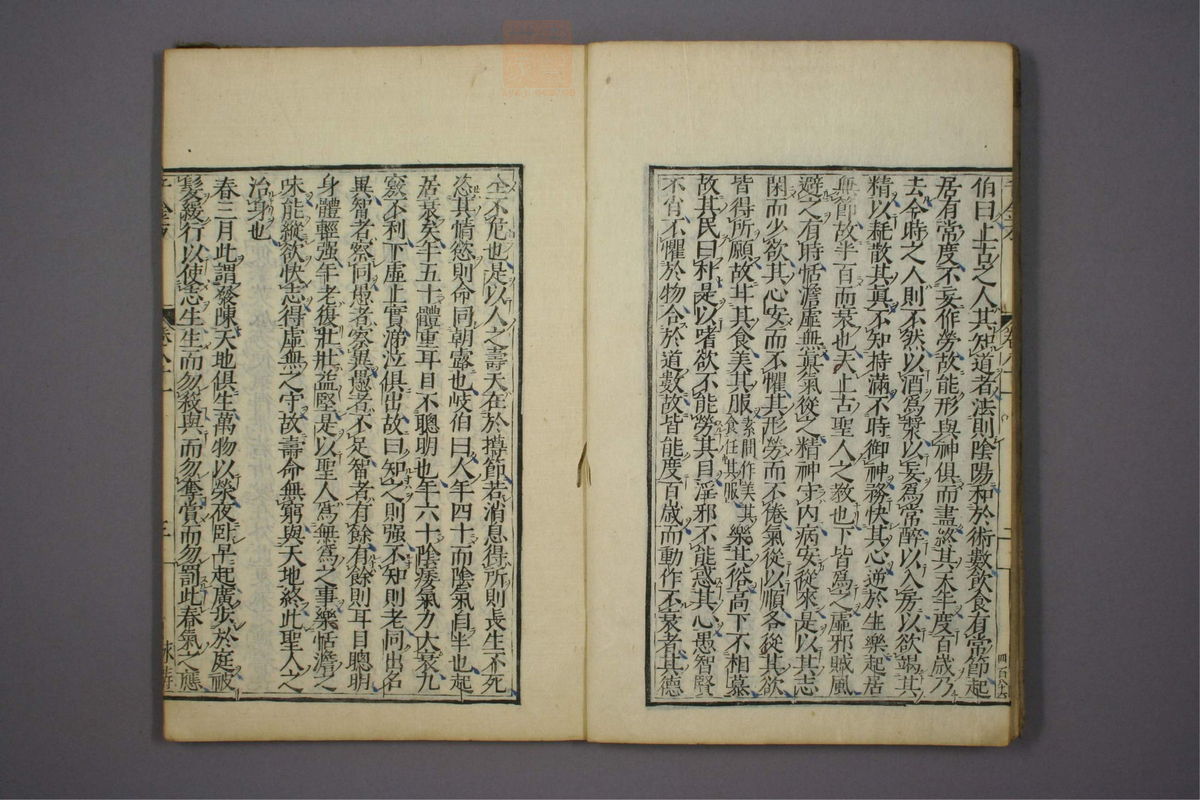 伯曰上古之人其知道者法則陰陽和於術數飲食有常節起
居有常度不妄作勞故能形與神俱而盡終其天年度百歲乃
去今時之人則不然以酒爲漿以妄爲常醉以入房以欲竭其
精以耗散其真不知持滿不時御神務快其心逆於生樂起居
無節故半百而衰也夫上古聖人之教也下皆爲之虛邪賊風
避之有時恬澹虛無真氣從之精神守內病安從來是以其志
閑而少欲其心安而不懼其形勞而不倦氣從以順各從其欲
皆得所願故甘其食美其服素問作美其食任其服樂其俗高下不相慕
故其民曰朴是以嗜欲不能勞其目淫邪不能惑其心愚智賢
不肖不懼於物合於道數故皆能度百歲而動作不衰者其德
四百八十六
全不危也是以人之壽夭在於撙節若消息得所則長生不死
恣其情慾則命同朝露也岐伯曰人年四十而陰氣自半也起
居衰矣年五十體重耳目不聰明也年六十陰痿氣力大衰九
竅不利下虛上實涕泣俱出故曰知之則强不知則老同出名
異智者察同愚者察異愚者不足智者有餘有餘則耳目聰明
身體輕强年老復壯壯益堅是以聖人爲無爲之事樂恬澹之
味能縱欲快志得虛無之守故壽命無窮與天地終此聖人之
治身也
春三月此謂發陳天地俱生萬物以榮夜臥早起廣步於庭被
髮緩行以使志生生而勿殺與而勿奪賞而勿罰此春氣之應